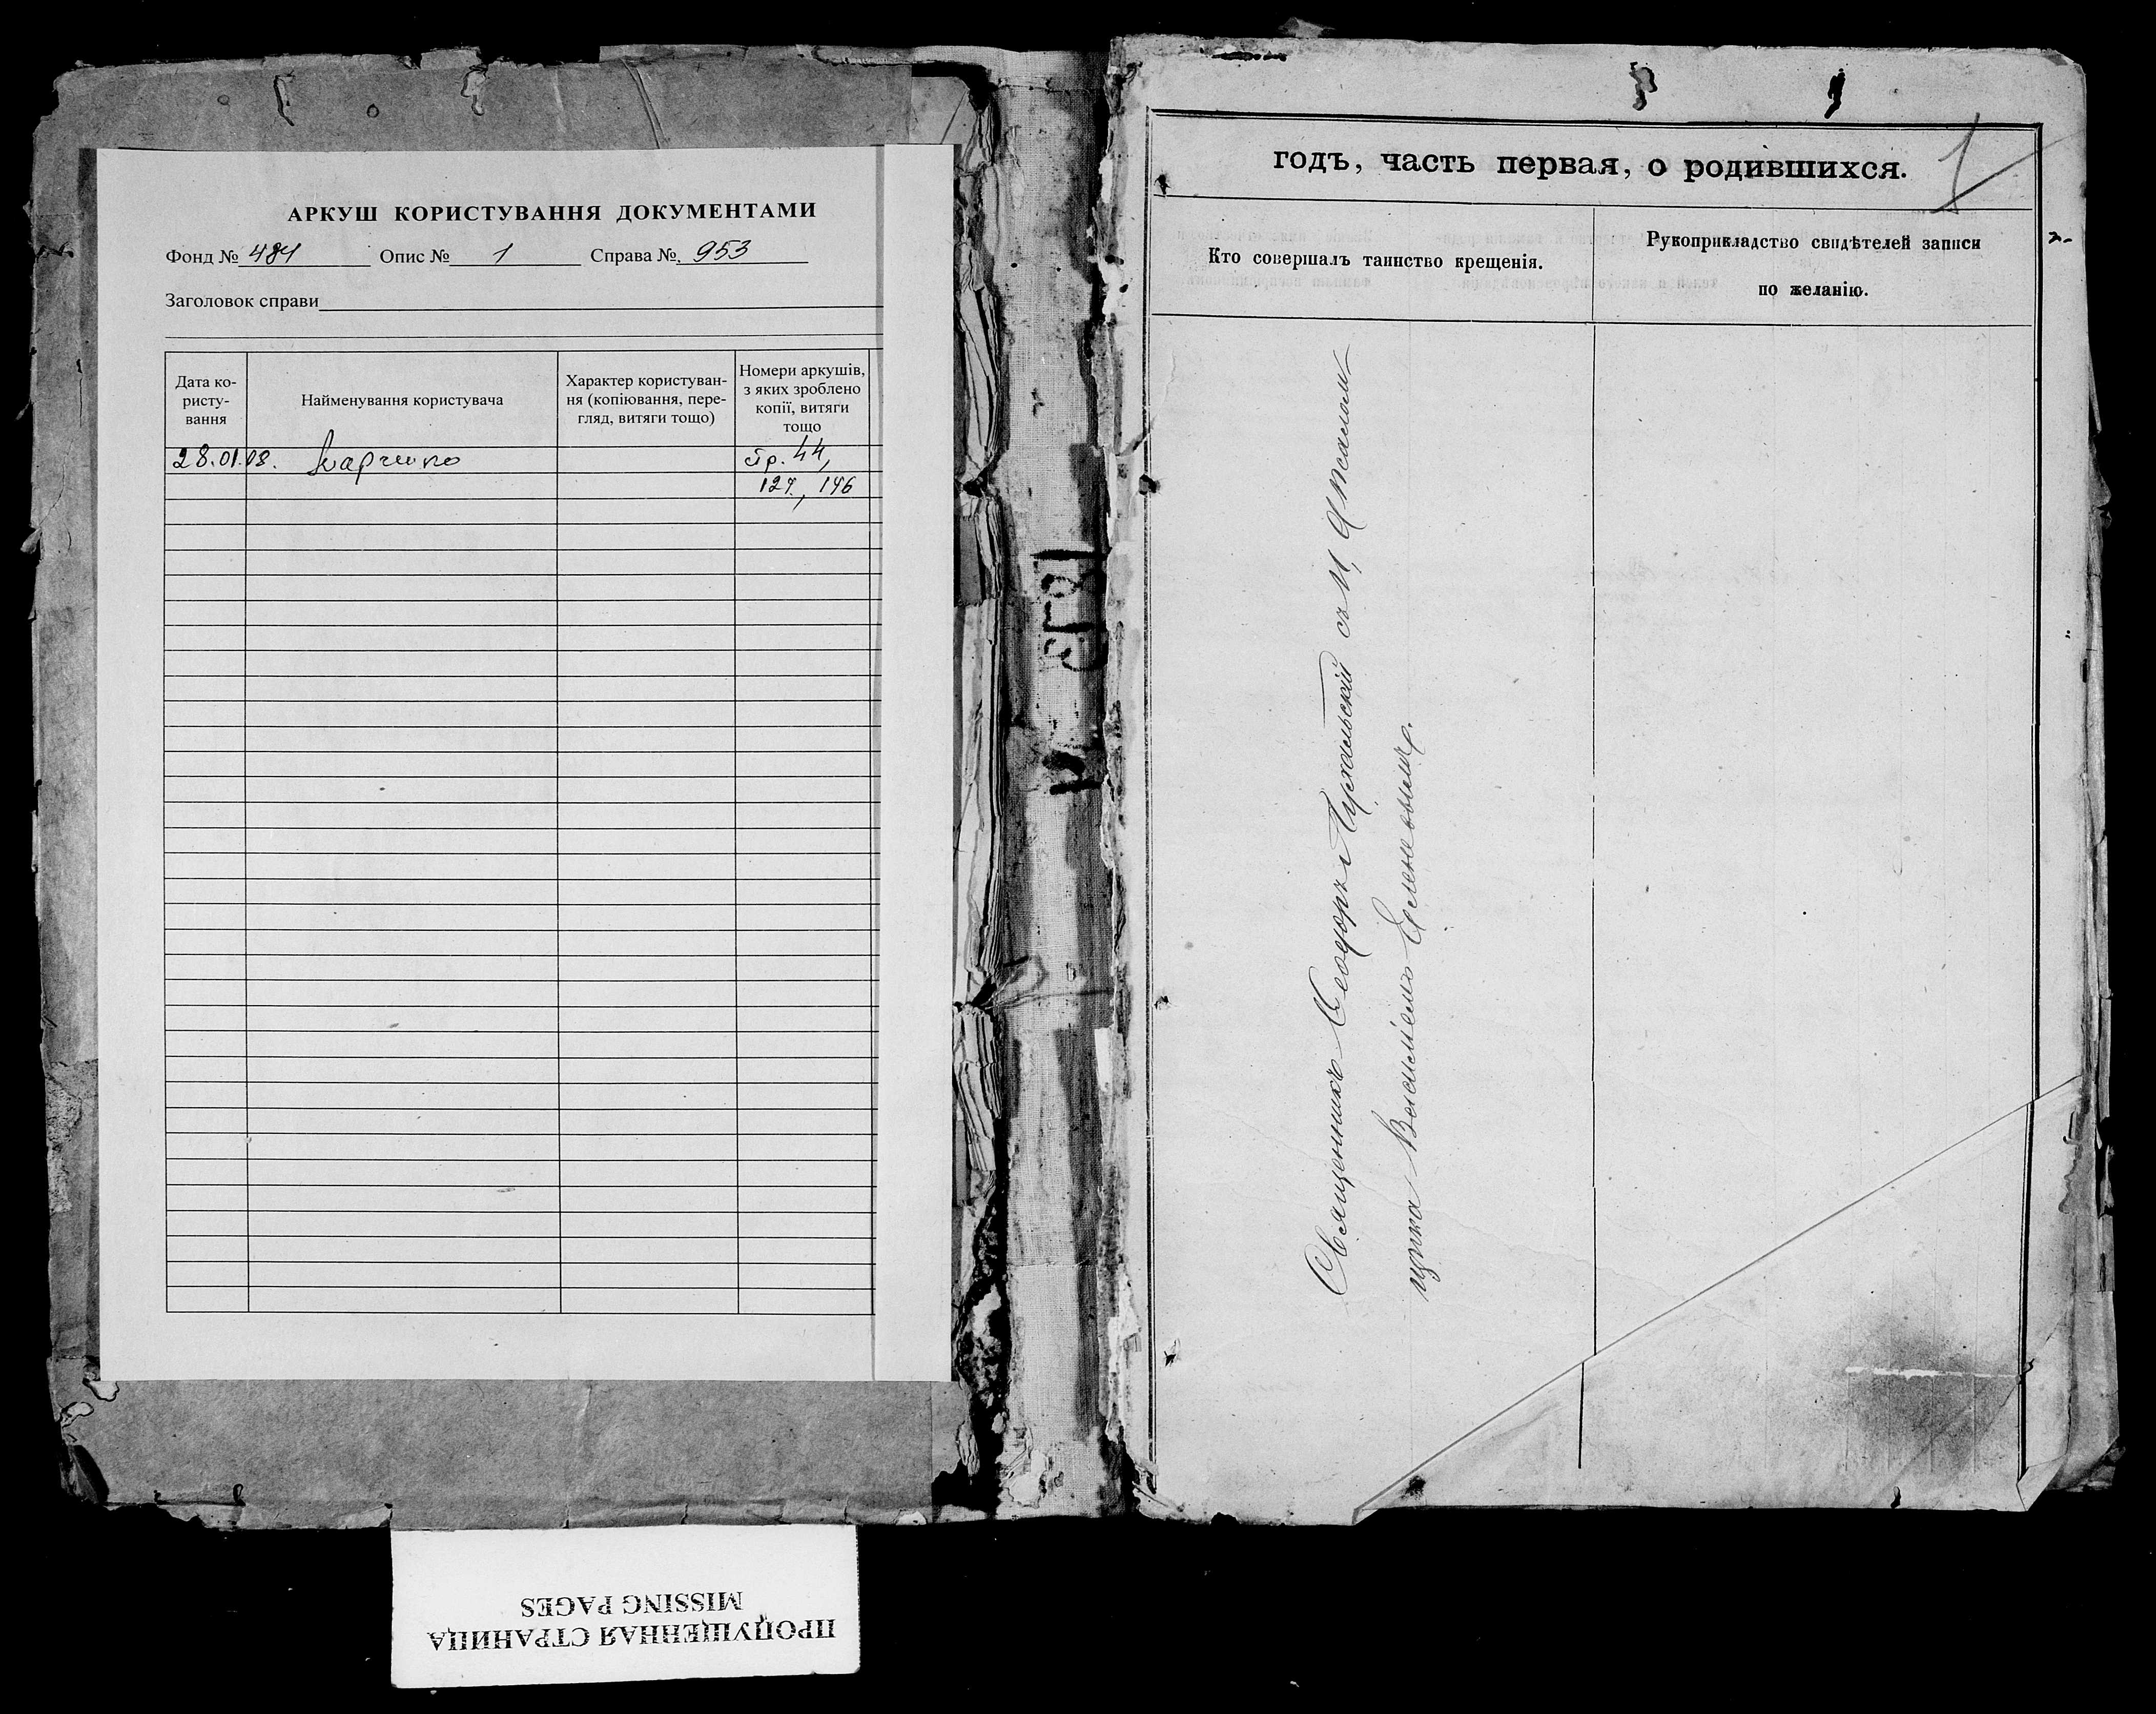 АРКУШ КОРИСТУВАННЯ ДОКУМЕНТАМИ
Фонд № 484 Опис № 1 Справа № 953
Заголовок справи
Дата ко-
ристу-
вання
Найменування користувача
Характер користуван-
ня (копіювання, пере-
гляд, витяги тощо)
Номери аркушів,
з яких зроблено
копії, витяги
тощо
28.01.08.
44,
127, 146
годъ, часть первая, о родившихся.
1
Кто совершалъ таинство крещенія.
Рукоприкладство свидѣтелей записи
по желанію.
Священникъ Ѳеодоръ съ
ПРОПУЩЕННАЯ СТРАНИЦА
MISSING PAGES